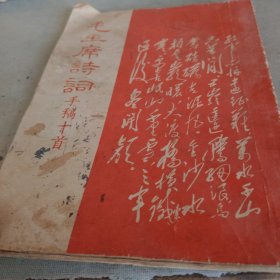 毛主席詩詞
手稿十首
紅軍不怕遠征難萬水千山
只等閒五嶺逶迤騰細浪烏
蒙磅礴走泥丸金沙水
拍雲崖暖大渡橋橫鐵
索寒更喜岷山千里雪三軍
過後盡開顏